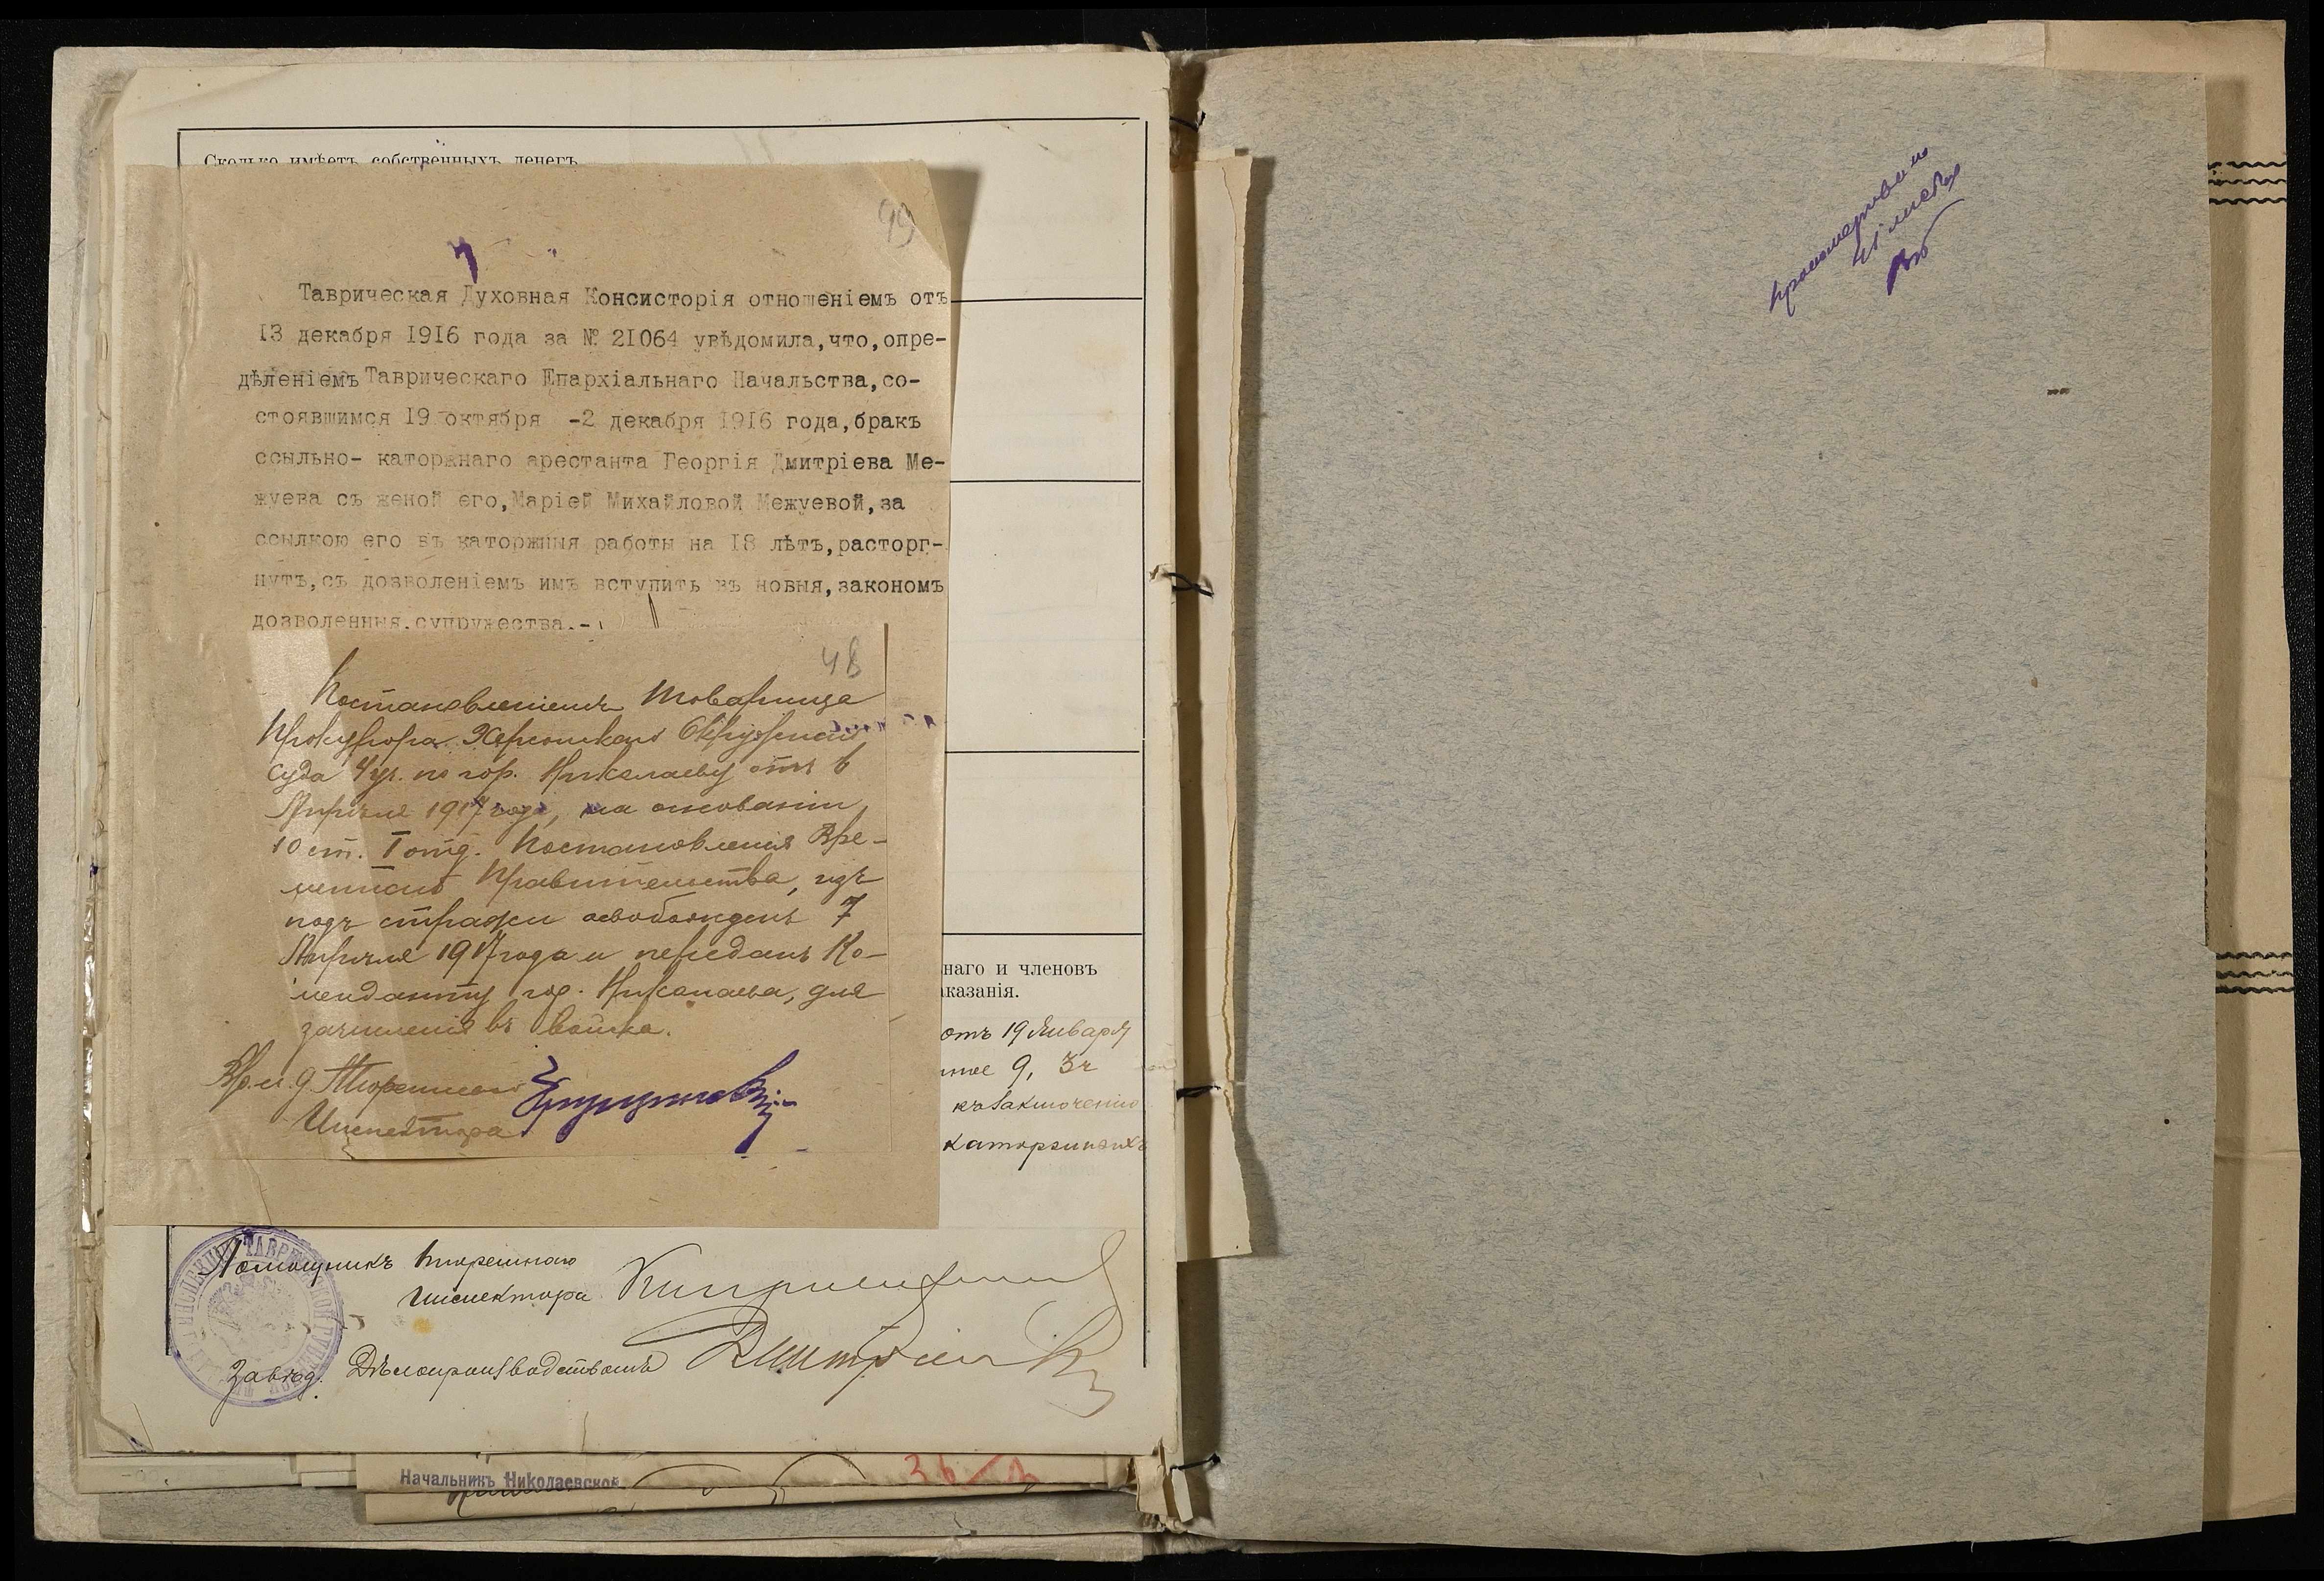 Сколько имѣетъ собственныхъ денегъ
99
Таврическая Духовная Консисторія отношеніемъ отъ
13 декабря 1916 года за № 21064 увѣдомила,что,опре-
дѣленіемъ Таврическаго Епархіальнаго Начальства,со-
стоявшимся 19 октября -2 декабря 1916 года,бракъ
ссыльно- каторжнаго арестанта Георгія Дмитріева Ме-
жуева съ женой его,Маріей Михайловой Межуевой,за
ссылкою его въ каторжныя работы на 18 лѣтъ,расторг-
нутъ,съ дозволеніемъ имъ вступить въ новыя,закономъ
дозволенныя,супружества.-
48
Постановленіемъ Товарища
Прокурора Херсонскаго Окружнаго
Суда 4 уч. по гор. Николаеву отъ 6
Апрѣля 1917 года, на основаніи
10 ст. I отд. Постановленія Вре-
меннаго Правительства, изъ
подъ стражи освобожденъ 7
Апрѣля 1917 года и переданъ Ко-
менданту гор. Николаева, для
зачисленія въ войска.
Вр. и. д. Тюремнаго
Инспектора
наго и членовъ
казанія.
отъ 19 Января
9, 3ч
къ заключенію
каторжныхъ
Помощникъ Тюремнаго
Инспектора
Завѣд. Дѣлопроизводствомъ
Начальникъ Николаевской
36
пронумеровано
41 листъ